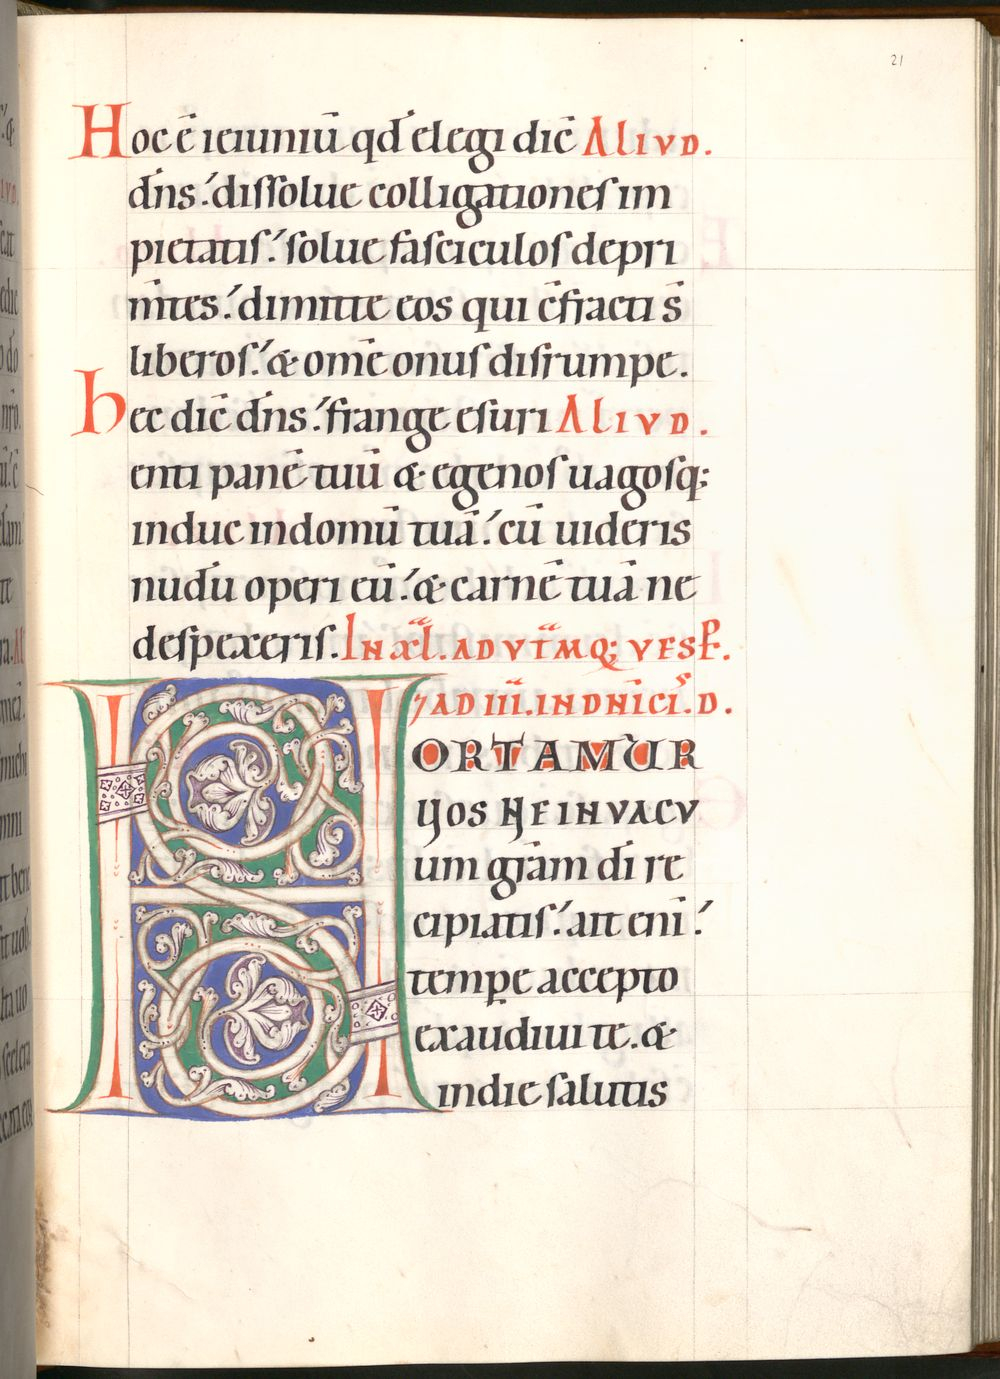 21
Hoc ē ieiuniū qđ elegi dic̄ ALIVD.
dn̄s: dissolue colligationes im
pietatis: solue fasciculos depri
m̄tes: dimitte eos qui c̄fracti s̄
liberos: & om̄e onus disrumpe.
hec dic̄ dn̄s: frange esuri ALIVD.
enti panē tuū & egenos uagosq;
induc indomū tuā: cū uideris
nudū operi eū: & carnē tuā ne
despexeris. IN XL. AD VT̄MQ; VESP̄.
7 AD III. IN DN̄ICIS D.
HORTAMUR
UOS NE IN VACV
um grām dī re
cipiatis: ait enī:
tempe accepto
exaudiui te. &
in die salutis